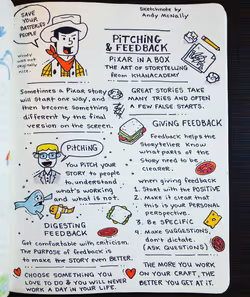 Sketchnote by
Andy McNally
SAVE
YOUR
BATTERIES
PEOPLE
PITCHING
& FEEDBACK
PIXAR IN A BOX
THE ART OF STORYTELLING
from KHANACADEMY
Sometimes a Pixar story
will start one way, and
then become something
different by the final
version on the screen.
GREAT STORIES TAKE
MANY TRIES AND OFTEN
A FEW FALSE STARTS.
PITCHING
YOU PITCH YOUR
STORY to people
to understand
what's working
and what is not.
GIVING FEEDBACK
Feedback helps the
Storyteller know
what parts of the
Story need to be
clearer.
when giving feedback
1. Start with the POSITIVE
2. Make it clear that
this is your personal
perspective.
3. Be SPECIFIC
4. Make SUGGESTIONS,
don't dictate.
(ASK QUESTIONS)
DIGESTING
FEEDBACK
Get comfortable with criticism.
The PURPOSE of feedback is
to make the story even BETTER.
CHOOSE SOMETHING YOU
LOVE TO DO & YOU WILL NEVER
WORK A DAY IN YOUR LIFE.
THE MORE YOU WORK
ON YOUR CRAFT, THE
BETTER YOU GET AT IT.